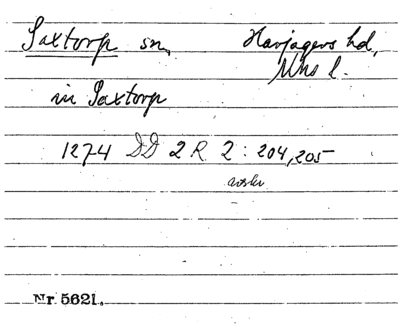 Saxtorp sn, Harjagers hd,
Mhs l.
in Saxtorp
1274 DD 2 R 2 : 204, 205
Nr 5621.